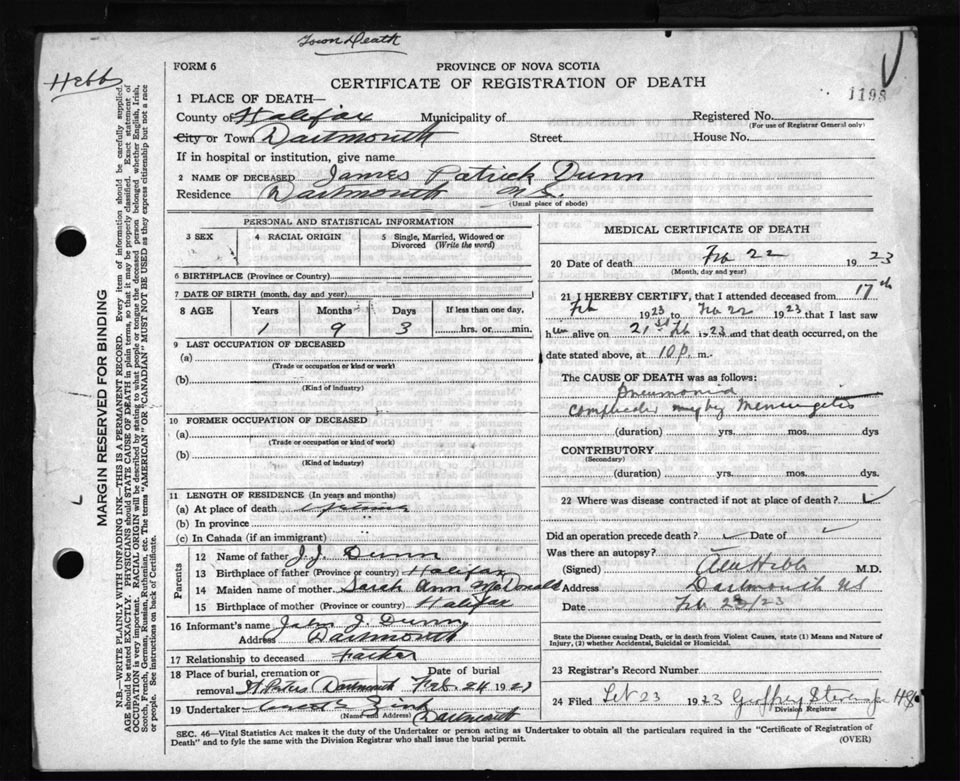 Town Death
Hebb
FORM 6
PROVINCE OF NOVA SCOTIA
CERTIFICATE OF REGISTRATION OF DEATH
1198
1 PLACE OF DEATH—
County of Halifax Municipality of Registered No.
(For use of Registrar General only)
City or Town Dartmouth Street House No.
If in hospital or institution, give name
2 NAME OF DECEASED James Patrick Dunn
Residence Dartmouth N S
(Usual place of abode)
PERSONAL AND STATISTICAL INFORMATION
3 SEX 4 RACIAL ORIGIN 5 Single, Married, Widowed or Divorced (Write the word)
6 BIRTHPLACE (Province or Country)
7 DATE OF BIRTH (month, day and year)
8 AGE Years Months Days If less than one day,
1 9 3 hrs. or min.
9 LAST OCCUPATION OF DECEASED
(a)
(Trade or occupation or kind or work)
(b)
(Kind of industry)
10 FORMER OCCUPATION OF DECEASED
(a)
(Trade or occupation or kind of work)
(b)
(Kind of industry)
11 LENGTH OF RESIDENCE (In years and months)
(a) At place of death
(b) In province
(c) In Canada (if an immigrant)
Parents
12 Name of father J. J. Dunn
13 Birthplace of father (Province or country) Halifax
14 Maiden name of mother Sarah Ann McDonald
15 Birthplace of mother (Province or country) Halifax
16 Informant's name John J. Dunn
Address Dartmouth
17 Relationship to deceased Father
18 Place of burial, cremation or removal St Peters Dartmouth Date of burial Feb. 24 192
19 Undertaker Dartmouth
(Name and Address)
MEDICAL CERTIFICATE OF DEATH
20 Date of death Feb 22 1923
(Month, day and year)
21 I HEREBY CERTIFY, that I attended deceased from 17th
Feb 1923 to Feb 22 1923 that I last saw
h alive on 21st Feb 1923 and that death occurred, on the
date stated above, at 10 p. m.
The CAUSE OF DEATH was as follows:
Pneumonia
(duration) yrs. mos. dys
CONTRIBUTORY
(Secondary)
(duration) yrs. mos. dys.
22 Where was disease contracted if not at place of death?
Did an operation precede death? Date of
Was there an autopsy?
(Signed) Hebb M.D.
Address Dartmouth NS
Date Feb 23/23
State the Disease causing Death, or in death from Violent Causes, state (1) Means and Nature of
Injury, (2) whether Accidental, Suicidal or Homicidal.
23 Registrar's Record Number
24 Filed Feb 23 1923 Geoffrey 48
Division Registrar
SEC. 46—Vital Statistics Act makes it duty of the Undertaker or person acting as Undertaker to obtain all the particulars required in the "Certificate of Registration of
Death" and to fyle the same with the Division Registrar who shall issue the burial permit.
(OVER)
MARGIN RESERVED FOR BINDING
N.B.—WRITE PLAINLY WITH UNFADING INK—THIS IS A PERMANENT RECORD. Every item of information should be carefully supplied.
AGE should be stated EXACTLY. PHYSICIANS should STATE CAUSE OF DEATH in plain terms, so that it may be properly classified. Exact statement of
OCCUPATION is very important. RACIAL ORIGIN will be described by stating to what people or tongue the deceased person belonged whether English, Irish,
Scotch, French, German, Russian, Ruthenian, etc. The terms "AMERICAN" OR "CANADIAN" MUST NOT BE USED as they express citizenship but not a race
or people. See instructions on back of Certificate.